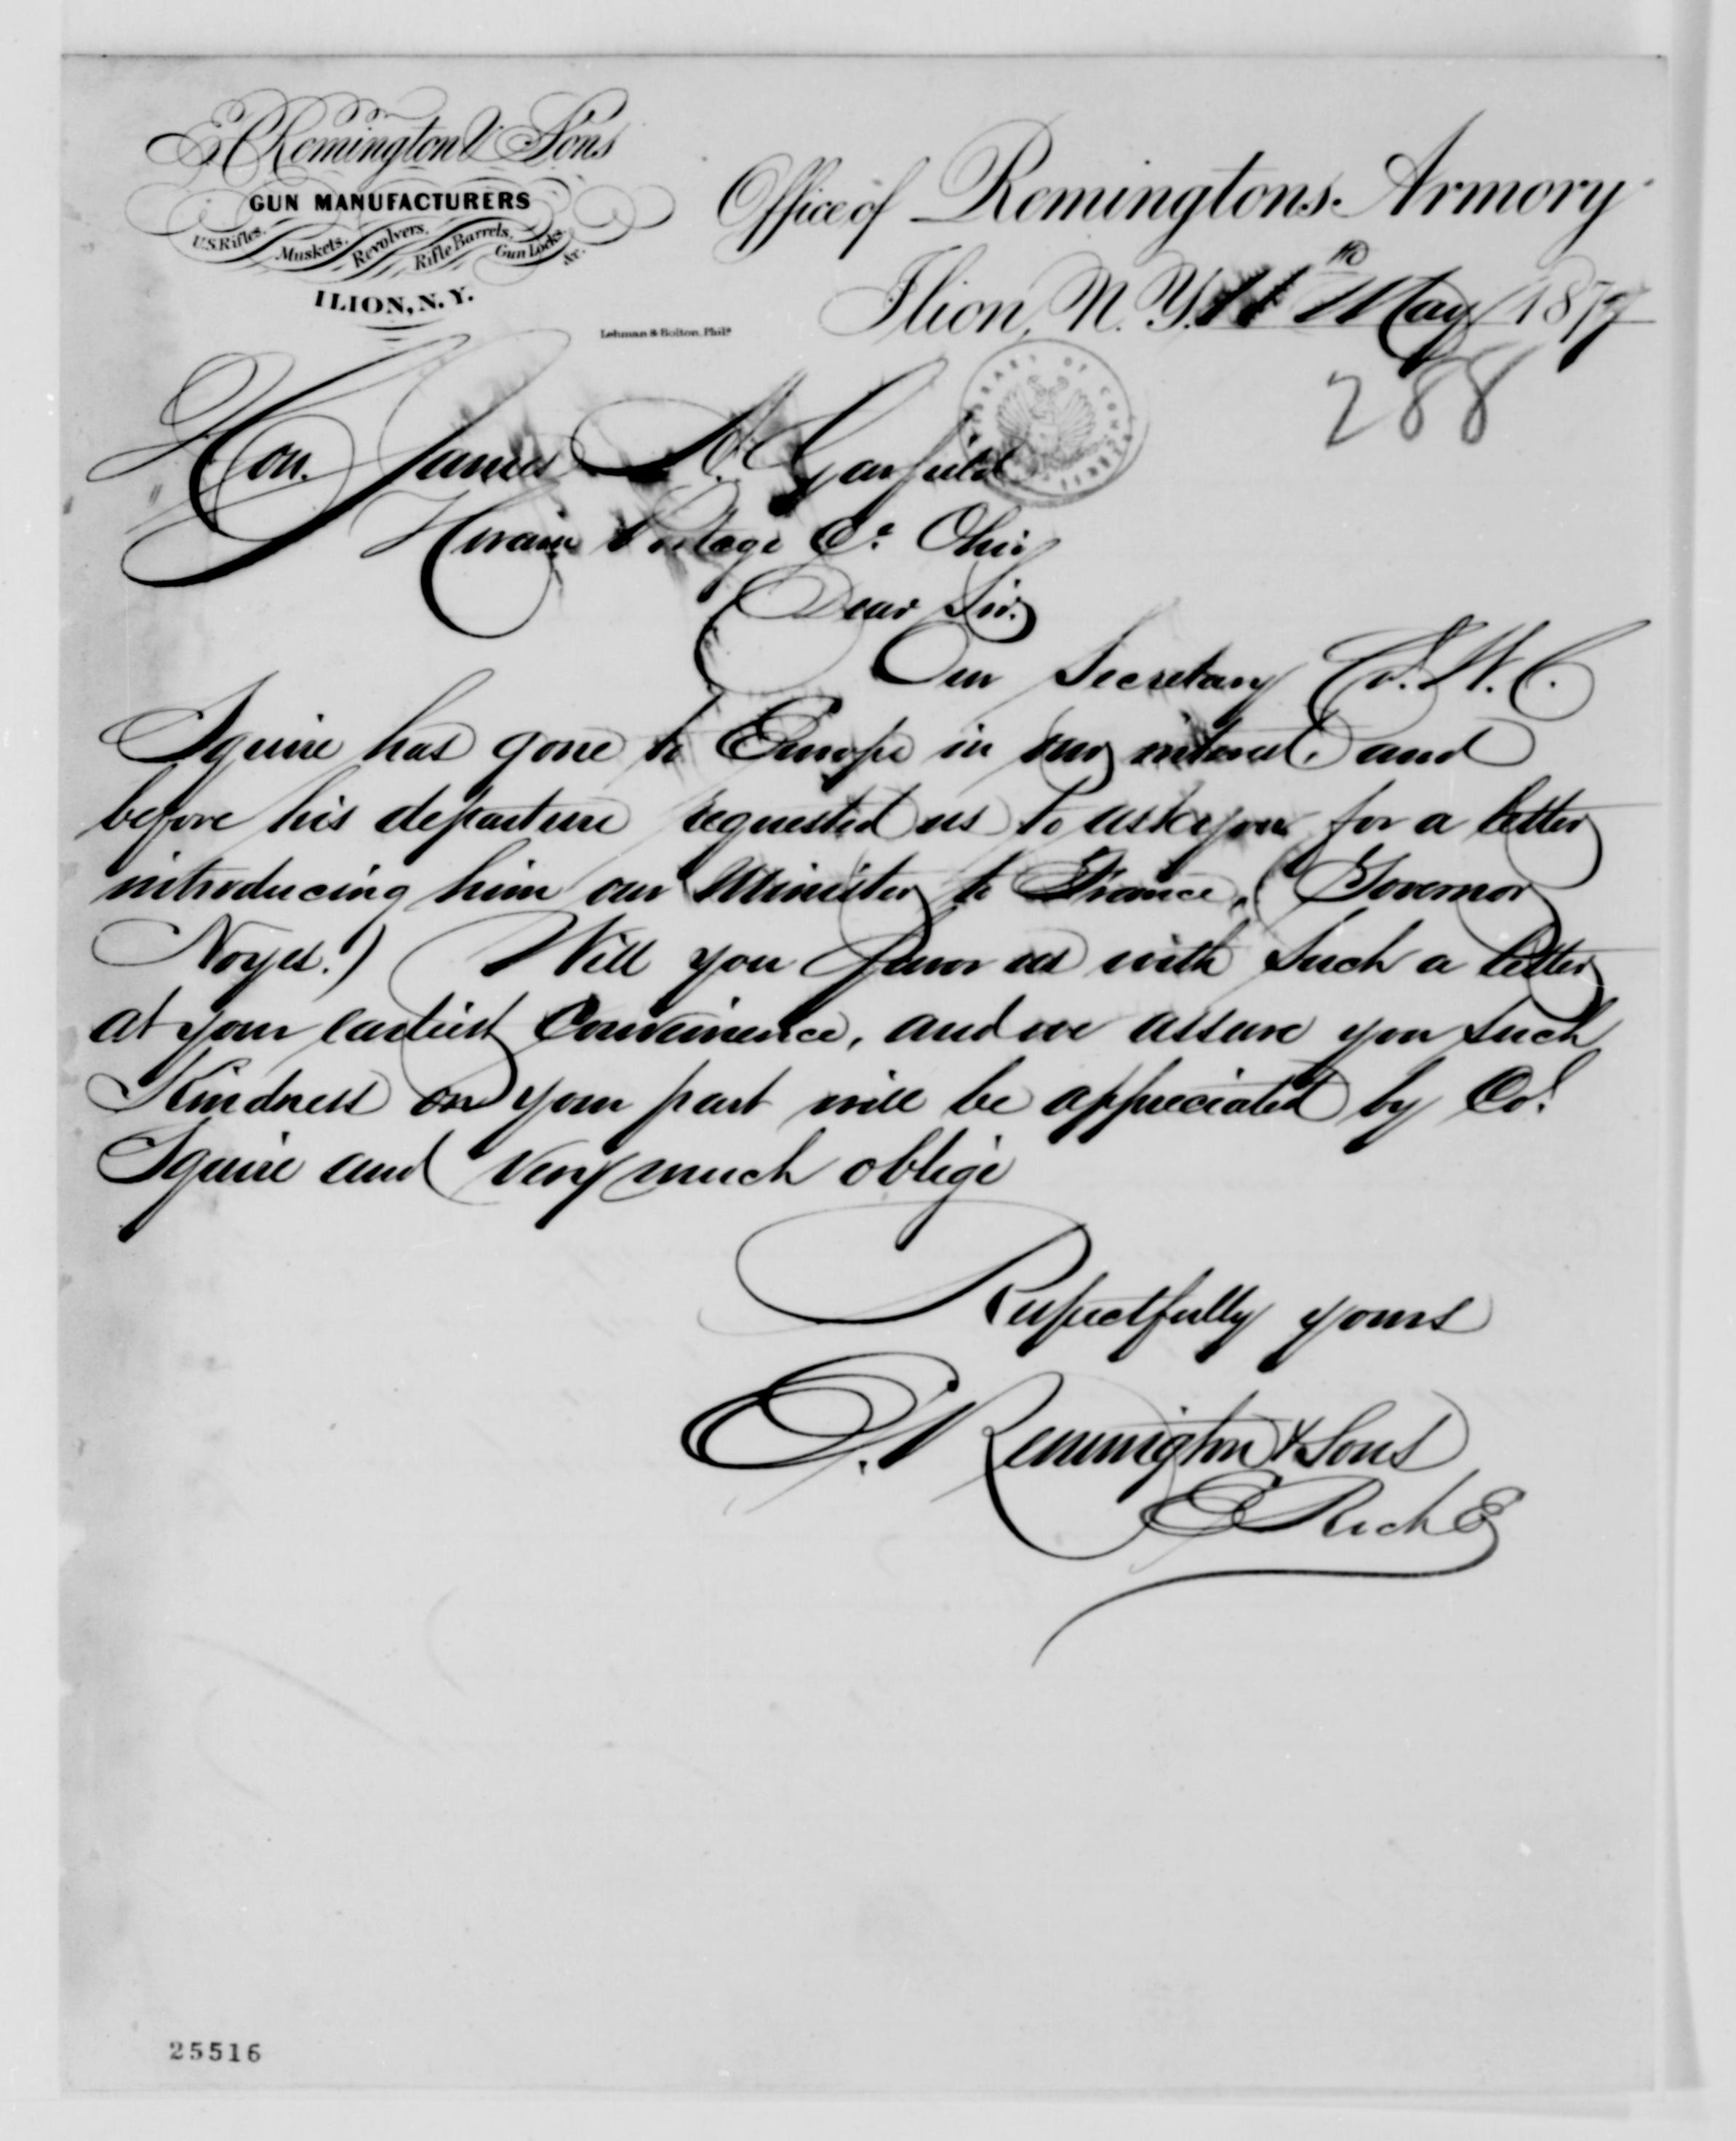 E. Remington & Sons
GUN MANUFACTURERS
U.S. Rifles, Muskets, Revolvers, Rifle Barrels, Gun Locks &c.
ILION, N.Y.
Lehman & Bolton, Phila
Office of Remingtons. Armory
Ilion, N. Y. 11th May 1877
288
LIBRARY OF CONGRESS
Hon. James A. Garfield
Hiram Portage Co. Ohio
Dear Sir.
Our Secretary Col. W. C.
Squire has gone to Europe in our interest, and
before his departure requested us to ask you for a letter
introducing him our Minister to France, (Governor
Noyes.) Will you favor us with such a letter
at your earliest Convenience, and we assure you such
Kindness on your part will be appreciated by Col.
Squire and very much oblige
Respectfully yours
E. Remington & Sons
25516